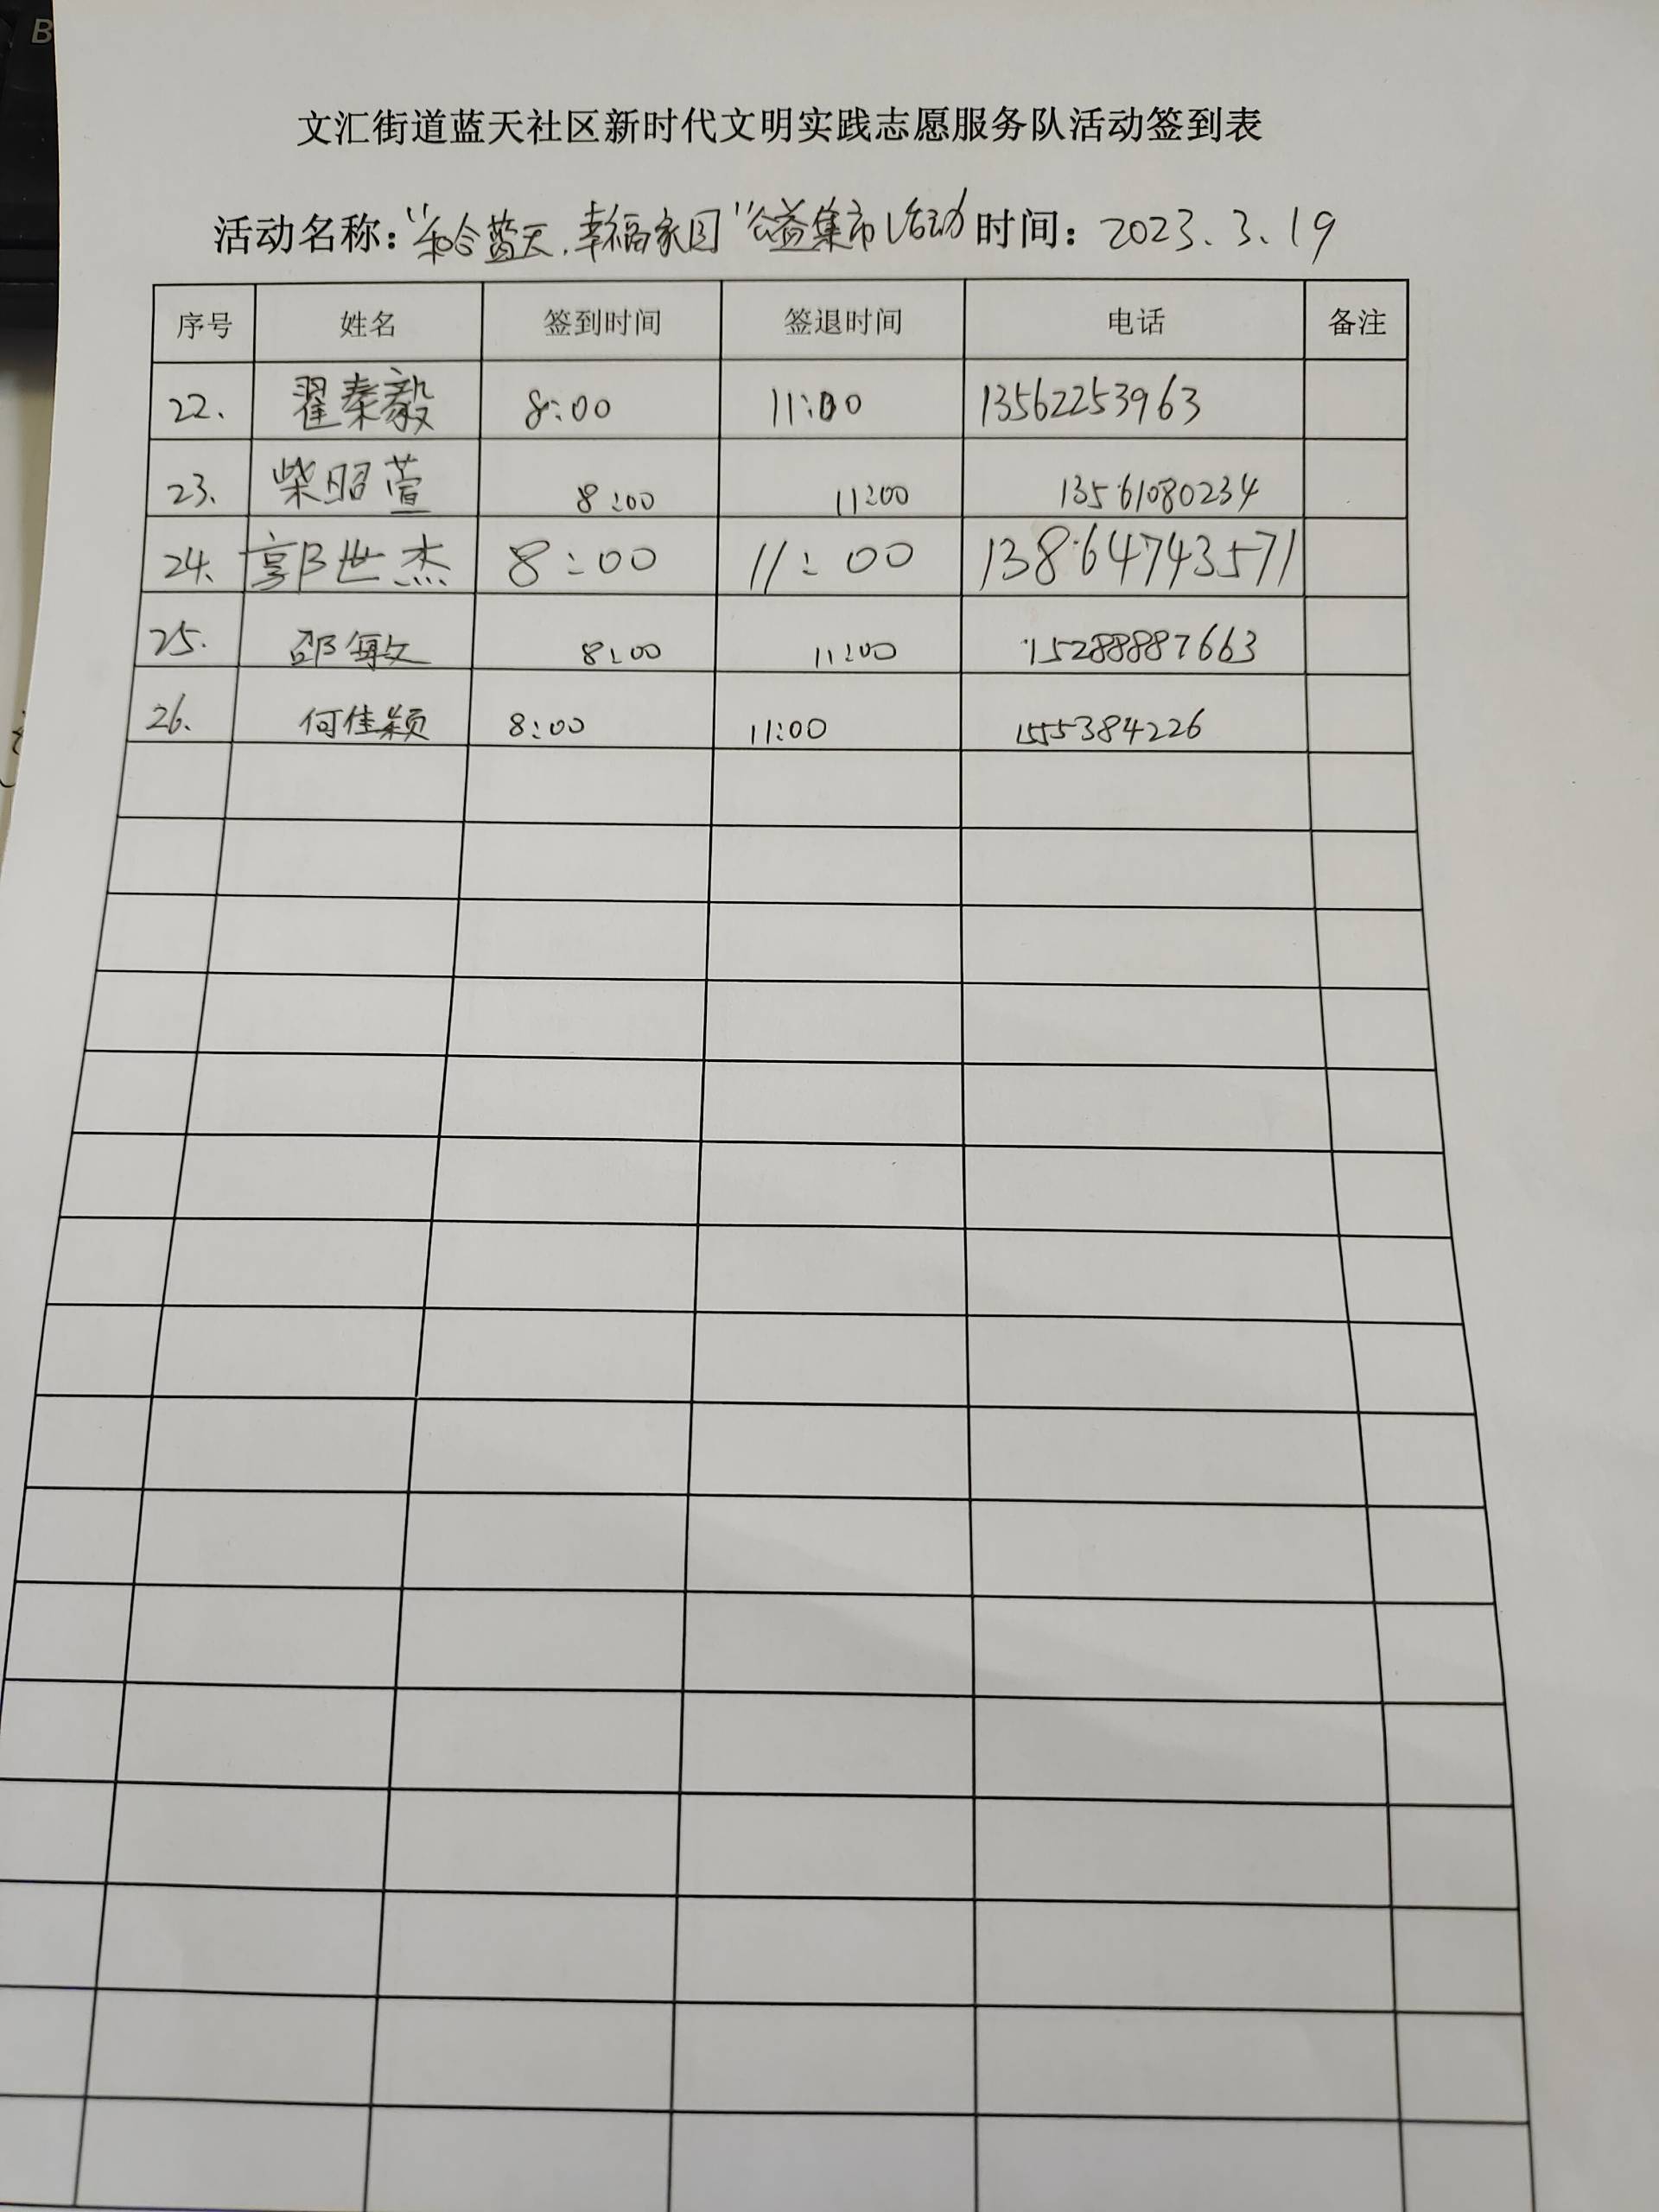 文汇街道蓝天社区新时代文明实践志愿服务队活动签到表
活动名称：“和合蓝天.幸福家园”公益集市活动 时间：2023.3.19
序号 姓名 签到时间 签退时间 电话 备注
22. 翟秦毅 8:00 11:00 13562253963
23. 柴昭萱 8:00 11:00 13561080234
24. 郭世杰 8:00 11:00 13864743571
25. 邵敏 8:00 11:00 15288887663
26. 何佳颖 8:00 11:00 1555384226
B